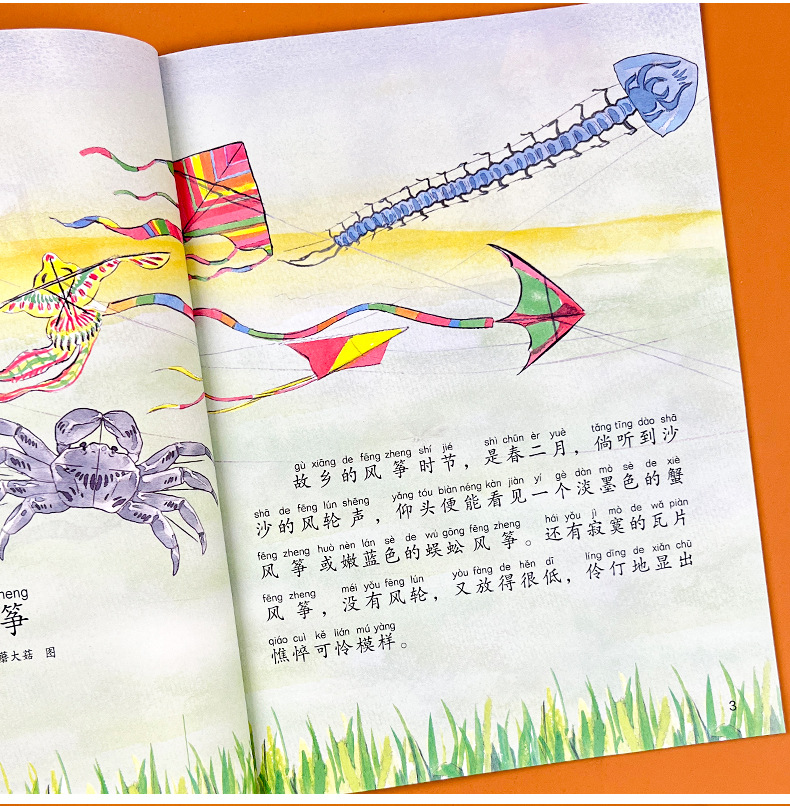 zheng
筝
蘑大菇 图
gù xiāng de fēng zheng shí jié shì chūn èr yuè tǎng tīng dào shā
故乡的风筝时节，是春二月，倘听到沙
shā de fēng lún shēng yǎng tóu biàn néng kàn jiàn yí gè dàn mò sè de xiè
沙的风轮声，仰头便能看见一个淡墨色的蟹
fēng zheng huò nèn lán sè de wú gōng fēng zheng hái yǒu jì mò de wǎ piàn
风筝或嫩蓝色的蜈蚣风筝。还有寂寞的瓦片
fēng zheng méi yǒu fēng lún yòu fàng de hěn dī líng dīng de xiǎn chū
风筝，没有风轮，又放得很低，伶仃地显出
qiáo cuì kě lián mú yàng
憔悴可怜模样。
3